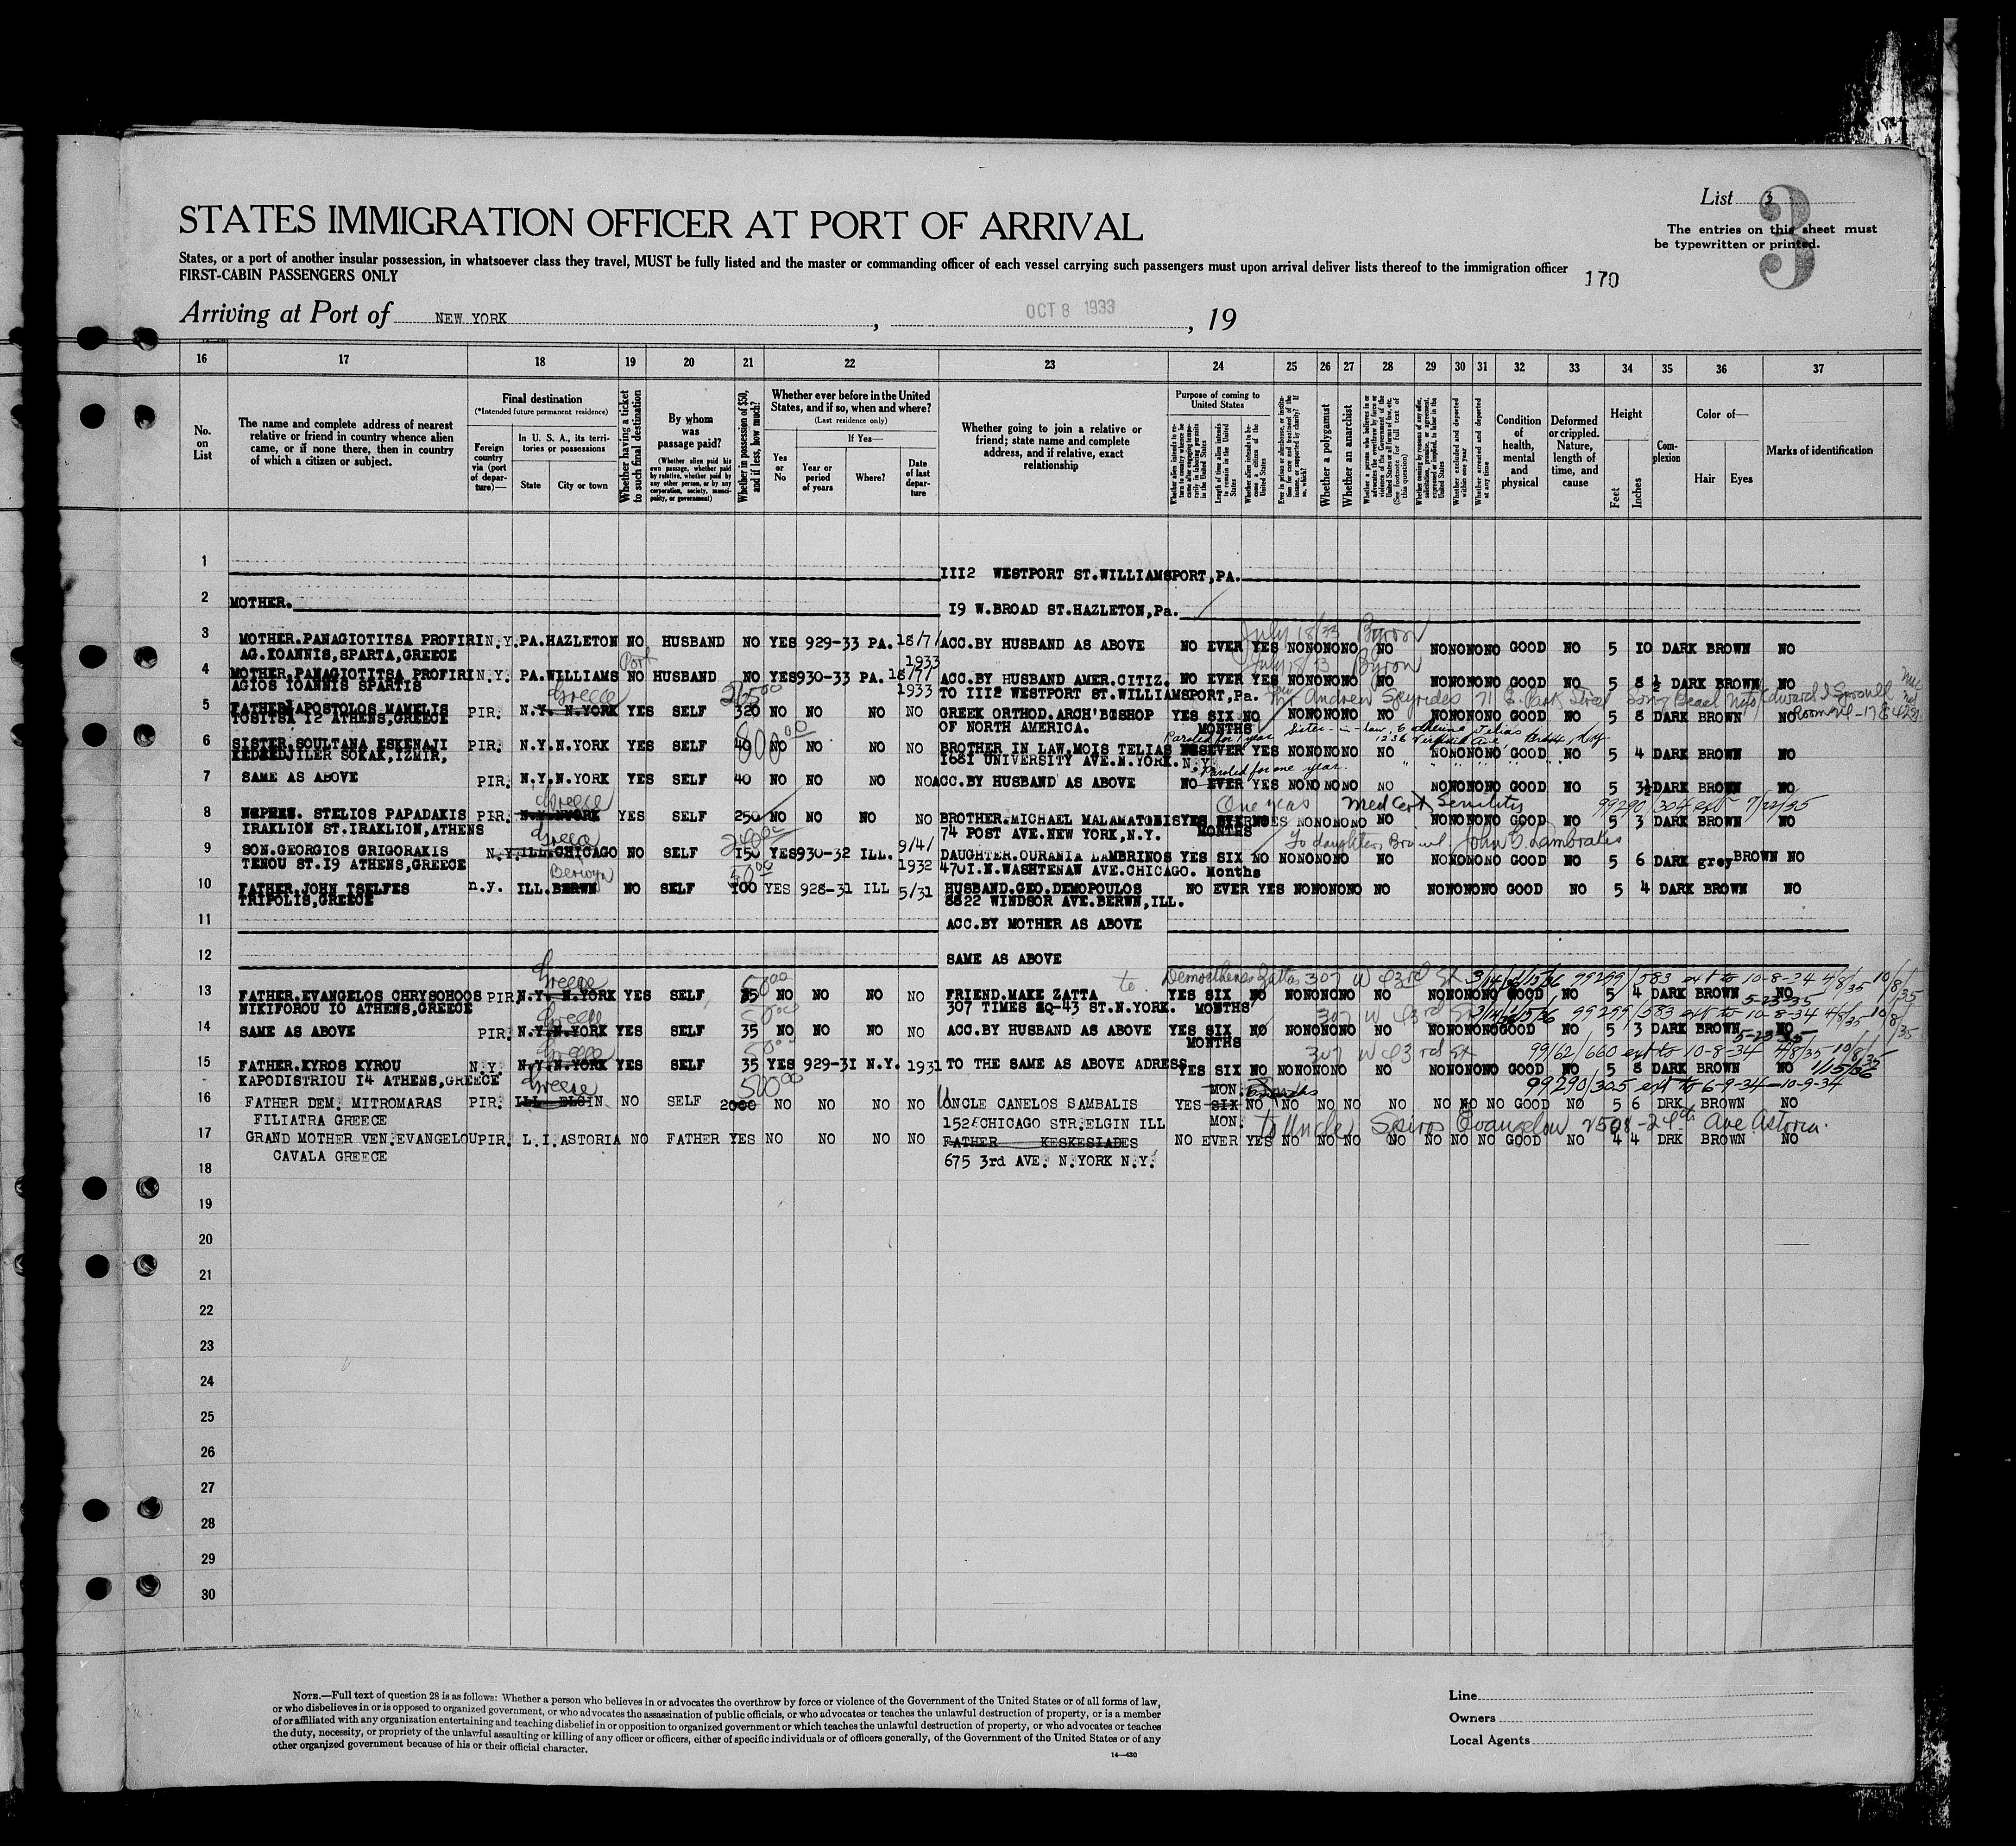 List 3
3
The entries on this sheet must
be typewritten or printed.
STATES IMMIGRATION OFFICER AT PORT OF ARRIVAL
States, or a port of another insular possession, in whatsoever class they travel, MUST be fully listed and the master or commanding officer of each vessel carrying such passengers must upon arrival deliver lists thereof to the immigration officer
FIRST-CABIN PASSENGERS ONLY
170
Arriving at Port of NEW YORK, OCT 8 1933, 19
16 17 18 19 20 21 22 23 24 25 26 27 28 29 30 31 32 33 34 35 36 37
No. on List
The name and complete address of nearest relative or friend in country whence alien came, or if none there, then in country of which a citizen or subject.
Final destination
(*Intended future permanent residence)
Foreign country via (port of departure)—
In U. S. A., its territories or possessions
State City or town
Whether having a ticket to such final destination
By whom was passage paid?
(Whether alien paid his own passage, whether paid by relative, whether paid by any other person, or by any corporation, society, municipality, or government)
Whether in possession of $50, and if less, how much?
Whether ever before in the United States, and if so, when and where?
(Last residence only)
Yes or No
If Yes—
Year or period of years
Where?
Date of last departure
Whether going to join a relative or friend; state name and complete address, and if relative, exact relationship
Purpose of coming to United States
Length of time alien intends to remain in the United States
Whether a polygamist
Whether an anarchist
Whether excluded and deported within one year
Whether arrested and deported at any time
Condition of health, mental and physical
Deformed or crippled. Nature, length of time, and cause
Height
Feet Inches
Complexion
Color of—
Hair Eyes
Marks of identification
1 III2 WESTPORT ST.WILLIAMSPORT,PA.
2 MOTHER. I9 W.BROAD ST.HAZLETON,Pa.
July 18/33 Byron
3 MOTHER.PANAGIOTITSA PROFIRI N.Y. PA.HAZLETON NO HUSBAND NO YES 929-33 PA. 18/7/ ACC.BY HUSBAND AS ABOVE NO EVER YES NO NO NO NO NO NO NO NO NO GOOD NO 5 IO DARK BROWN NO
AG.IOANNIS,SPARTA,GREECE 1933
July 18/33 Byron
4 MOTHER.PANAGIOTITSA PROFIRI N.Y. PA.WILLIAMS Port NO HUSBAND NO YES 930-33 PA. 18/7/ ACC.BY HUSBAND AMER.CITIZ. NO EVER YES NO NO NO NO NO NO NO NO NO GOOD NO 5 8 ½ DARK BROWN NO
AGIOS IOANNIS SPARTIS 1933 TO III2 WESTPORT ST.WILLIAMSPORT,Pa.
Greece Andrew Spyrides 71 E. Park Street Long Beach
5 FATHER APOSTOLOS MAMELIS PIR. N.Y. N.YORK YES SELF 320 NO NO NO NO GREEK ORTHOD.ARCH'BISHOP YES SIX NO NO NO NO NO NO NO NO NO NO GOOD NO 5 8 DARK BROWN NO
TOSITSA I2 ATHENS,GREECE OF NORTH AMERICA. MONTHS
800 00 Paroled for 1 year Sister-in-law,
6 SISTER.SOULTANA ESKENAJI PIR. N.Y.N.YORK YES SELF 40 NO NO NO NO BROTHER IN LAW.MOIS TELIAS EVER YES NO NO NO NO NO NO NO NO NO GOOD NO 5 4 DARK BROWN NO
SOKAK,IZMIR, I68I UNIVERSITY AVE.N.YORK.N.Y.
Paroled for one year.
7 SAME AS ABOVE PIR. N.Y.N.YORK YES SELF 40 NO NO NO NO ACC.BY HUSBAND AS ABOVE NO EVER YES NO NO NO NO NO NO NO NO NO GOOD NO 5 3½ DARK BROWN NO
Greece One year Med Cert Senility 99290/304 ext 9/22/35
8 STELIOS PAPADAKIS PIR. N.Y.N.YORK YES SELF 250 NO NO NO NO BROTHER.MICHAEL MALAMATONIS YES SIX NO NO NO NO NO NO NO NO NO GOOD NO 5 3 DARK BROWN NO
IRAKLION ST.IRAKLION,ATHENS 74 POST AVE.NEW YORK,N.Y. MONTHS
Greece 240 00 To daughter's John G. Lambrakis
9 SON.GEORGIOS GRIGORAKIS N.Y. ILL.CHICAGO NO SELF I50 YES 930-32 ILL. 9/4/ DAUGHTER.OURANIA LAMBRINOS YES SIX NO NO NO NO NO NO NO NO NO NO GOOD NO 5 6 DARK grey BROWN NO
TENOU ST.I9 ATHENS,GREECE 1932 470I.N.WASHTENAW AVE.CHICAGO. Months
Berwyn 50 00
10 FATHER.JOHN TSELFES n.y. ILL.BERWN NO SELF 100 YES 928-31 ILL 5/31 HUSBAND.GEO.DEMOPOULOS NO EVER YES NO NO NO NO NO NO NO NO NO GOOD NO 5 4 DARK BROWN NO
TRIPOLIS,GREECE WINDSOR AVE.BERWN,ILL.
11 ACC.BY MOTHER AS ABOVE
12 SAME AS ABOVE
Greece 50 00 to Demosthenes Zattas 307 W 43rd St 99299/583 ext to 10-8-34 4/8/35 10/8/35
13 FATHER.EVANGELOS CHRYSOHOOS PIR. N.Y. N.YORK YES SELF 35 NO NO NO NO FRIEND.MAKE ZATTA YES SIX NO NO NO NO NO NO NO NO NO NO GOOD NO 5 4 DARK BROWN NO
NIKIFOROU IO ATHENS,GREECE 307 TIMES SQ-43 ST.N.YORK. MONTHS 5-23-35
Greece 50 00 307 W 43rd St 99299/583 ext to 10-8-34 4/8/35 10/8/35
14 SAME AS ABOVE PIR. N.Y.N.YORK YES SELF 35 NO NO NO NO ACC.BY HUSBAND AS ABOVE YES SIX NO NO NO NO NO NO NO NO NO NO GOOD NO 5 3 DARK BROWN NO
MONTHS 5-23-35
Greece 50 00 307 W 43rd St 99162/660 ext to 10-8-34 4/8/35 10/8/35
15 FATHER.KYROS KYROU N.Y. N.Y.N.YORK YES SELF 35 YES 929-3I N.Y. 1931 TO THE SAME AS ABOVE ADRESS YES SIX NO NO NO NO NO NO NO NO NO NO GOOD NO 5 8 DARK BROWN NO 1/15/36
KAPODISTRIOU I4 ATHENS,GREECE
Greece 500 00 MON. 99290/305 ext to 6-9-34—10-9-34
16 FATHER DEM. MITROMARAS PIR. ILL. ELGIN NO SELF 2000 NO NO NO NO UNCLE CANELOS SAMBALIS YES SIX NO NO NO NO NO NO NO NO GOOD NO 5 6 DRK BROWN NO
FILIATRA GREECE 152 CHICAGO STR.ELGIN ILL MON.
To Uncle Spiros Evangelou 2508-24th Ave Astoria.
17 GRAND MOTHER VEN.EVANGELOU PIR. L.I.ASTORIA NO FATHER YES NO NO NO NO FATHER KESKESIADES NO EVER YES NO NO NO NO NO NO NO NO GOOD NO 4 4 DRK BROWN NO
CAVALA GREECE 675 3rd AVE. N.YORK N.Y.
18
19
20
21
22
23
24
25
26
27
28
29
30
NOTE.—Full text of question 28 is as follows: Whether a person who believes in or advocates the overthrow by force or violence of the Government of the United States or of all forms of law,
or who disbelieves in or is opposed to organized government, or who advocates the assassination of public officials, or who advocates or teaches the unlawful destruction of property, or is a member
of or affiliated with any organization entertaining and teaching disbelief in or opposition to organized government or which teaches the unlawful destruction of property, or who advocates or teaches
the duty, necessity, or propriety of the unlawful assaulting or killing of any officer or officers, either of specific individuals or of officers generally, of the Government of the United States or of any
other organized government because of his or their official character.
14—430
Line
Owners
Local Agents